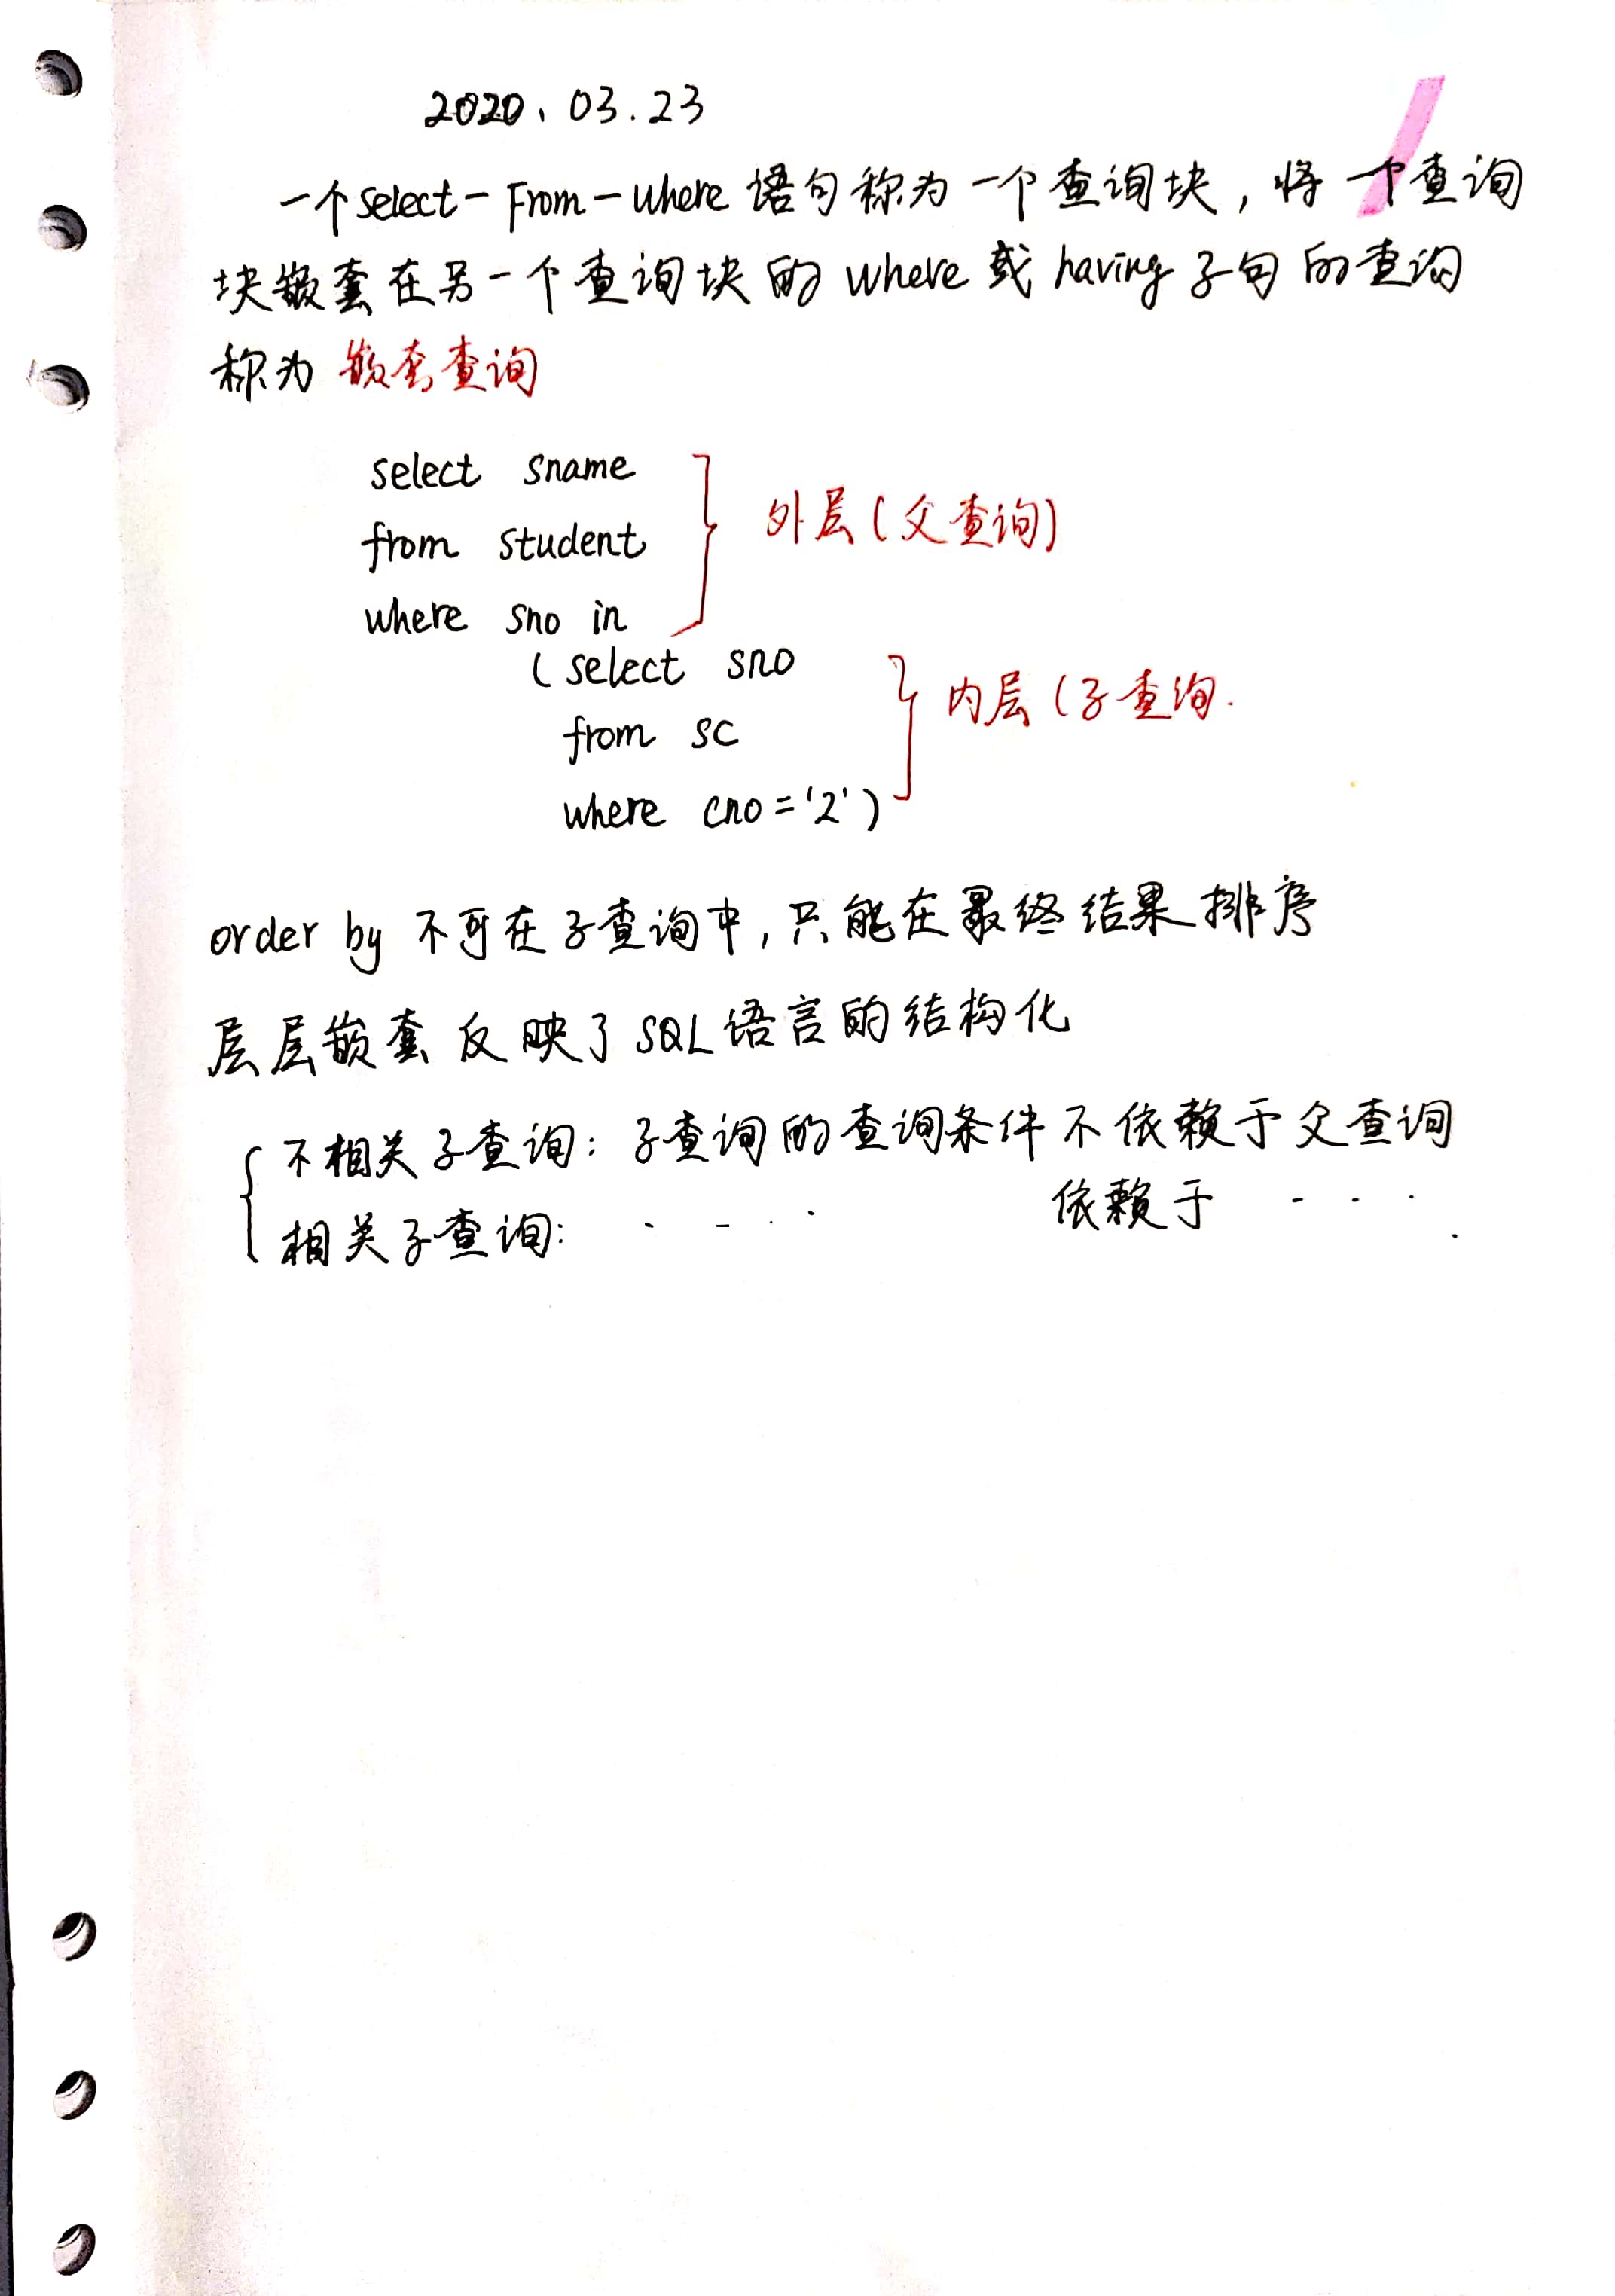 2020、03.23
一个select-From-where语句称为一个查询块，将一个查询
块嵌套在另一个查询块的where或having子句的查询
称为 嵌套查询
select sname
from student
外层(父查询)
where sno in
(select sno
内层(子查询.
from sc
where cno='2')
order by 不可在子查询中,只能在最终结果排序
层层嵌套反映了SQL语言的结构化
不相关子查询: 子查询的查询条件不依赖于父查询
相关子查询: . - . . 依赖于 - - - .